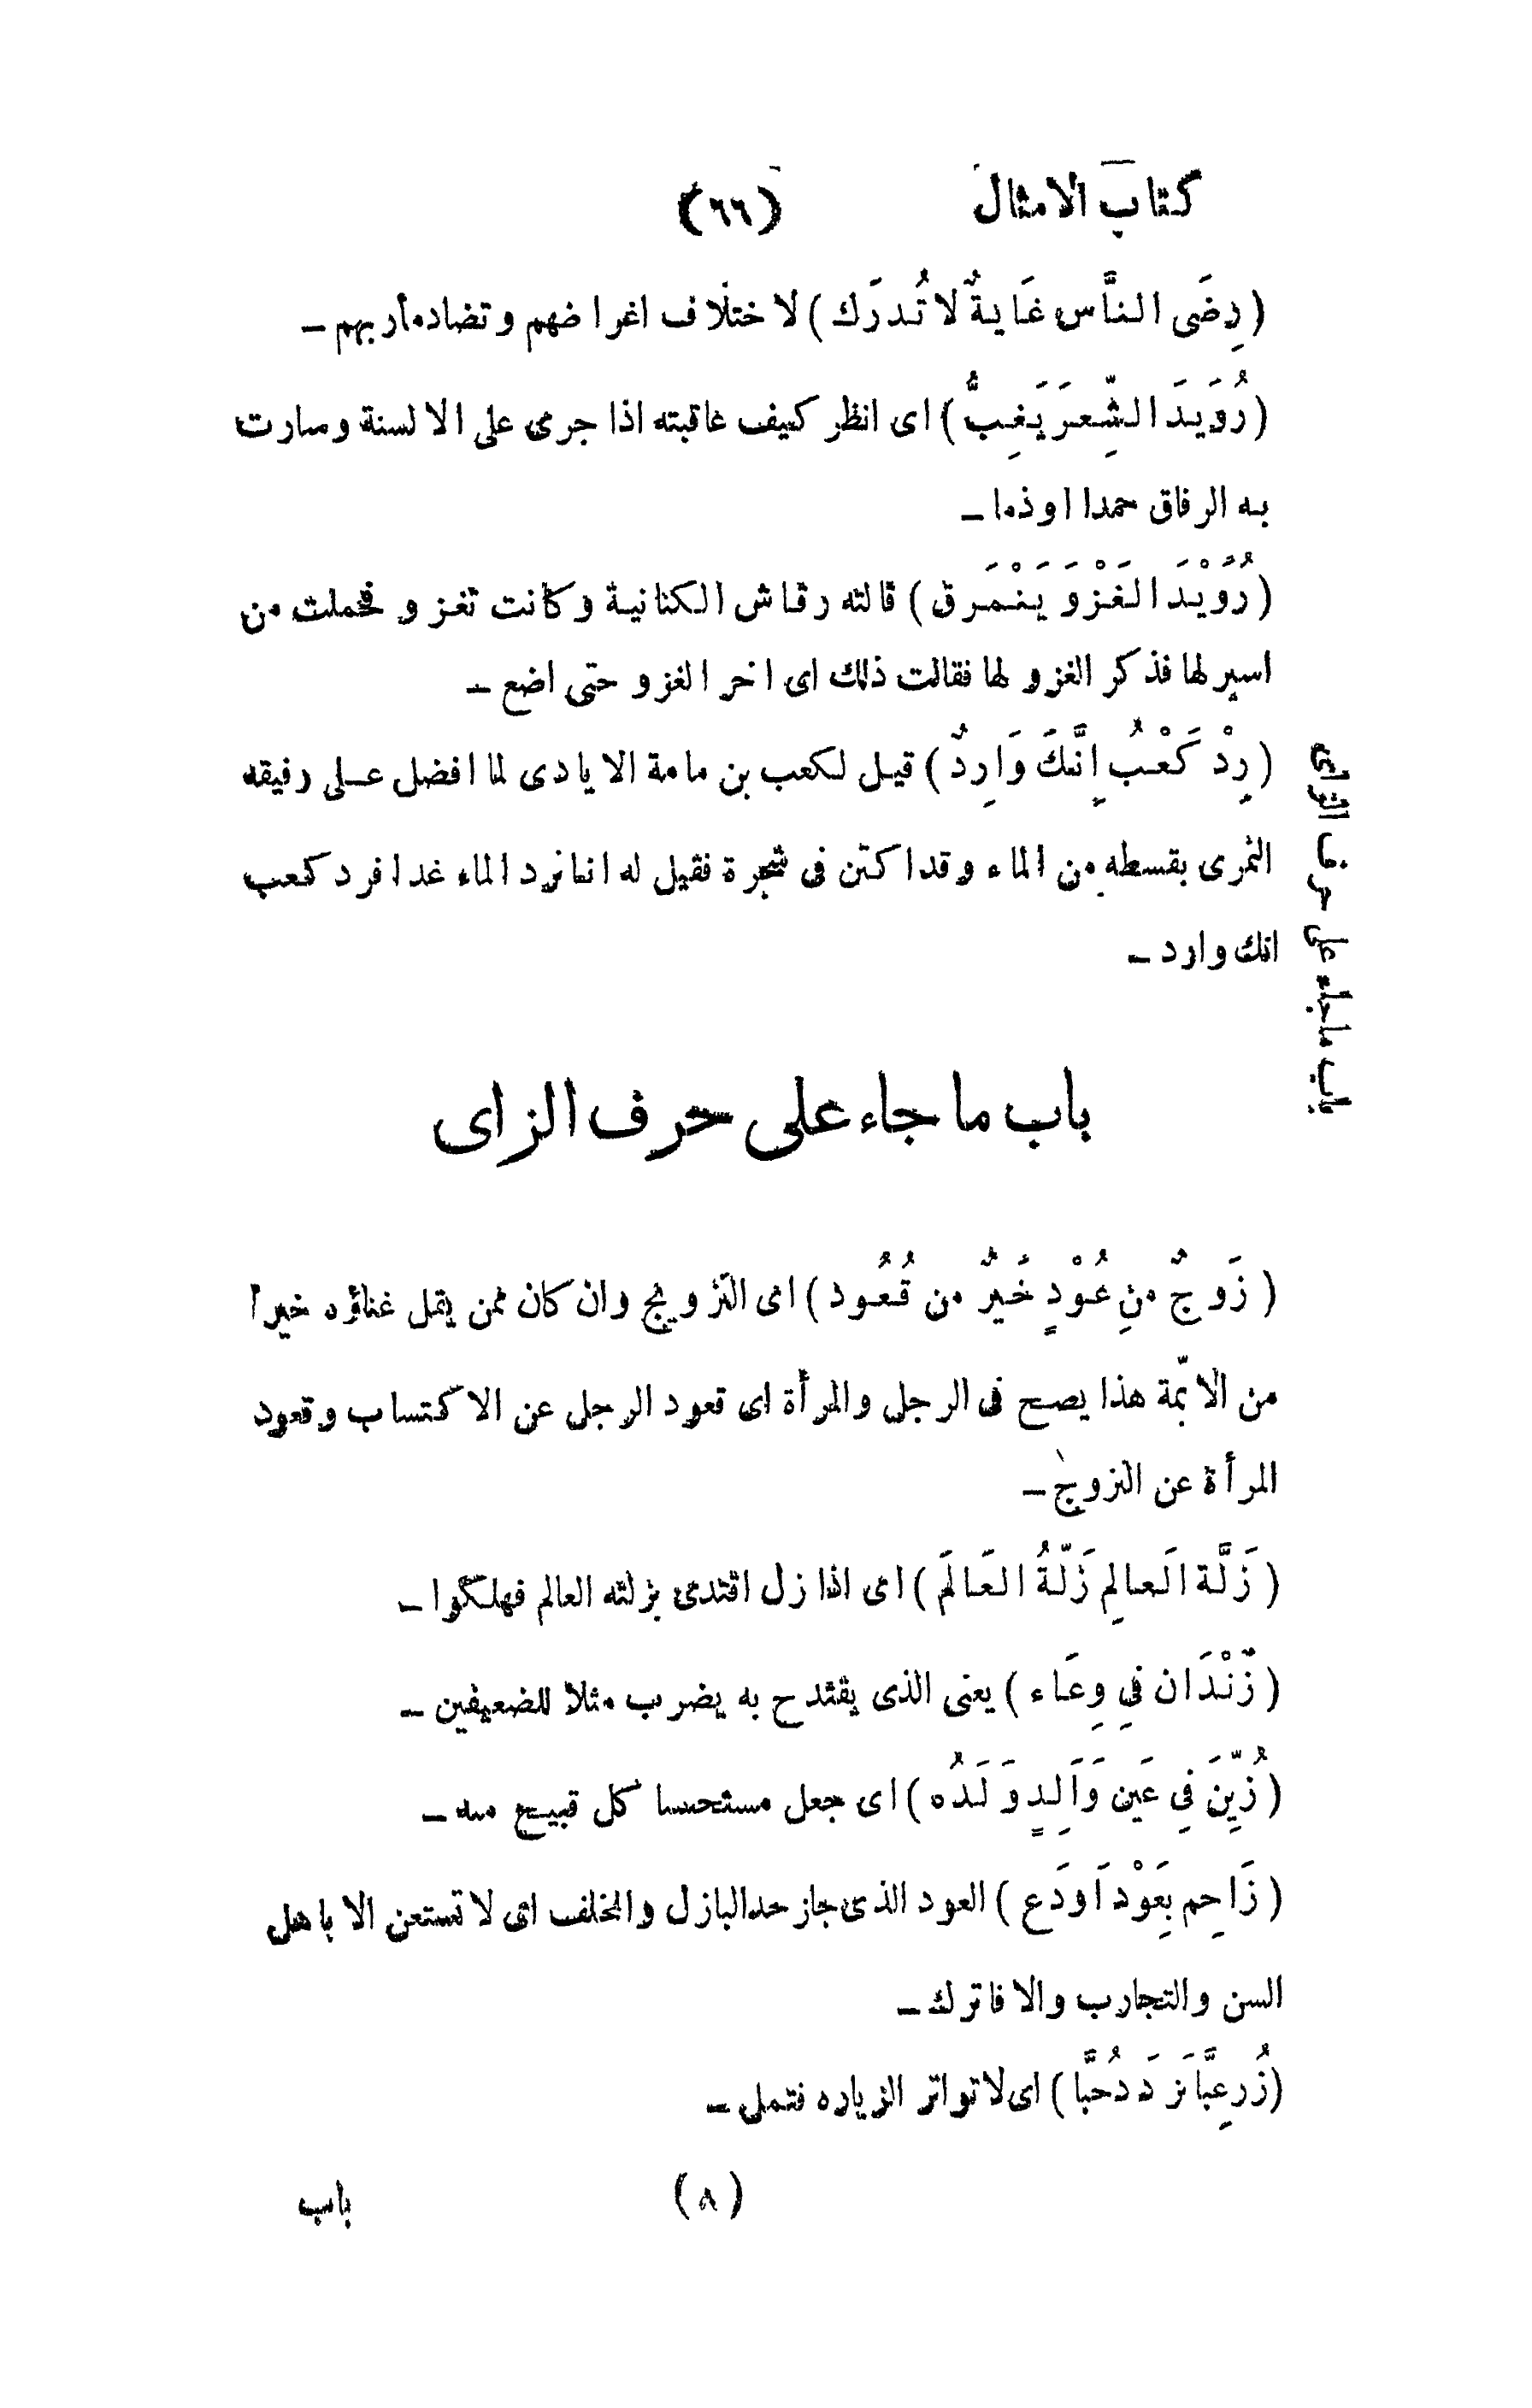 كتاب الامثال (٦٦)
(رِضَى النَّاس غَايةٌ لا تُدرَك) لاختلاف اغراضهم وتضادمأربهم –
(رُوَيَدَ الشِّعرَ يَغِبُّ) اى انظر كيف عاقبته اذا جرى على الالسنة وسارت
به الرفاق حمدا اوذما –
(رُوَيْدَ الغَزْوَ يَنْمَرق) قالته رقاش الكنانية وكانت تغزو فحملت من
اسير لها فذكر الغزو لها فقالت ذلك اى اخر الغزو حتى اضع –
(رِدْ كَعْبُ اِنَّكَ وَارِدٌ) قيل لكعب بن مامة الايادى لما افضل على رفيقه
النمرى بقسطه من الماء وقد اكتن فى شجرة فقيل له انا نرد الماء غدا فرد كعب
انك وارد –
باب ما جاء على حرف الزاى
باب ما جاء على حرف الزاى
(زَوجٌ منِ عُوْدٍ خَيرٌ من قُعُود) اى التزويج وان كان ممن يقل غناؤه خيرا
من الايّمة هذا يصح فى الرجل والمرأة اى قعود الرجل عن الاكتساب وقعود
المرأة عن التزوج –
(زَلَّة العَالِم زَلّةُ العَالَم) اى اذا زل اقتدى بزلته العالم فهلكوا –
(زَنْدَان فِي وِعَاء) يعنى الذى يقتدح به يضرب مثلا للضعيفين –
(زُيِّنَ فِي عَين وَالِدٍ وَلَدُه) اى جعل مستحسنا كل قبيح منه –
(زَاحِم بِعَوْد اَودَع) العود الذى جاز حد البازل والمخلف اى لا تستعن الا باهل
السن والتجارب والا فاترك –
(زُرغِبَّا تَزدَد حُبَّا) اى لا تواتر الزياره فتمل –
(٨) باب